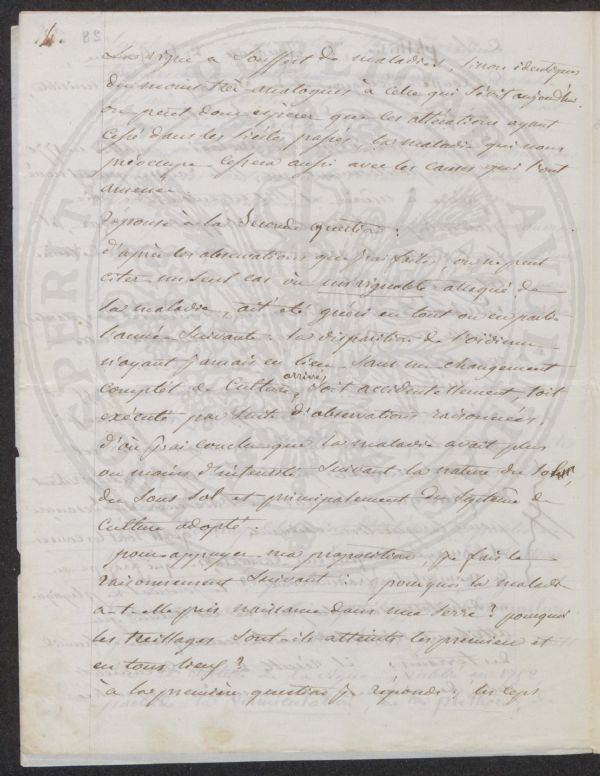 4.
La vigne a souffert de maladies, sinon identiques
du moins très analogues à celle qui sévit aujourd'hui.
on peut donc espérer que les altérations ayant
cessé dans les siècles passés, la maladie qui nous
préoccupe cessera aussi avec les causes qui l'ont
amenée.
réponse à la seconde question :
d'après les observations que j'ai faites, on ne peut
citer un seul cas où un vignoble attaqué de
la maladie, ait été guéri en tout ou en partie
l'année suivante. la disparition de l'oïdium
n'ayant jamais eu lieu sans un changement
complet de culture arrivé, soit accidentellement, soit
exécuté par suite d'observations raisonnées.
d'où j'ai conclu que la maladie avait plus
ou moins d'intensité suivant la nature du sol,
du sous sol et principalement du système de
culture adopté.
pour appuyer ma proposition, je fais le
raisonnement suivant : pourquoi la maladie
a-t-elle pris naissance dans une serre ? pourquoi
les treillages sont-ils atteints les premiers et
en tous lieux ?
à la première question je réponds ; les ceps
PERIT